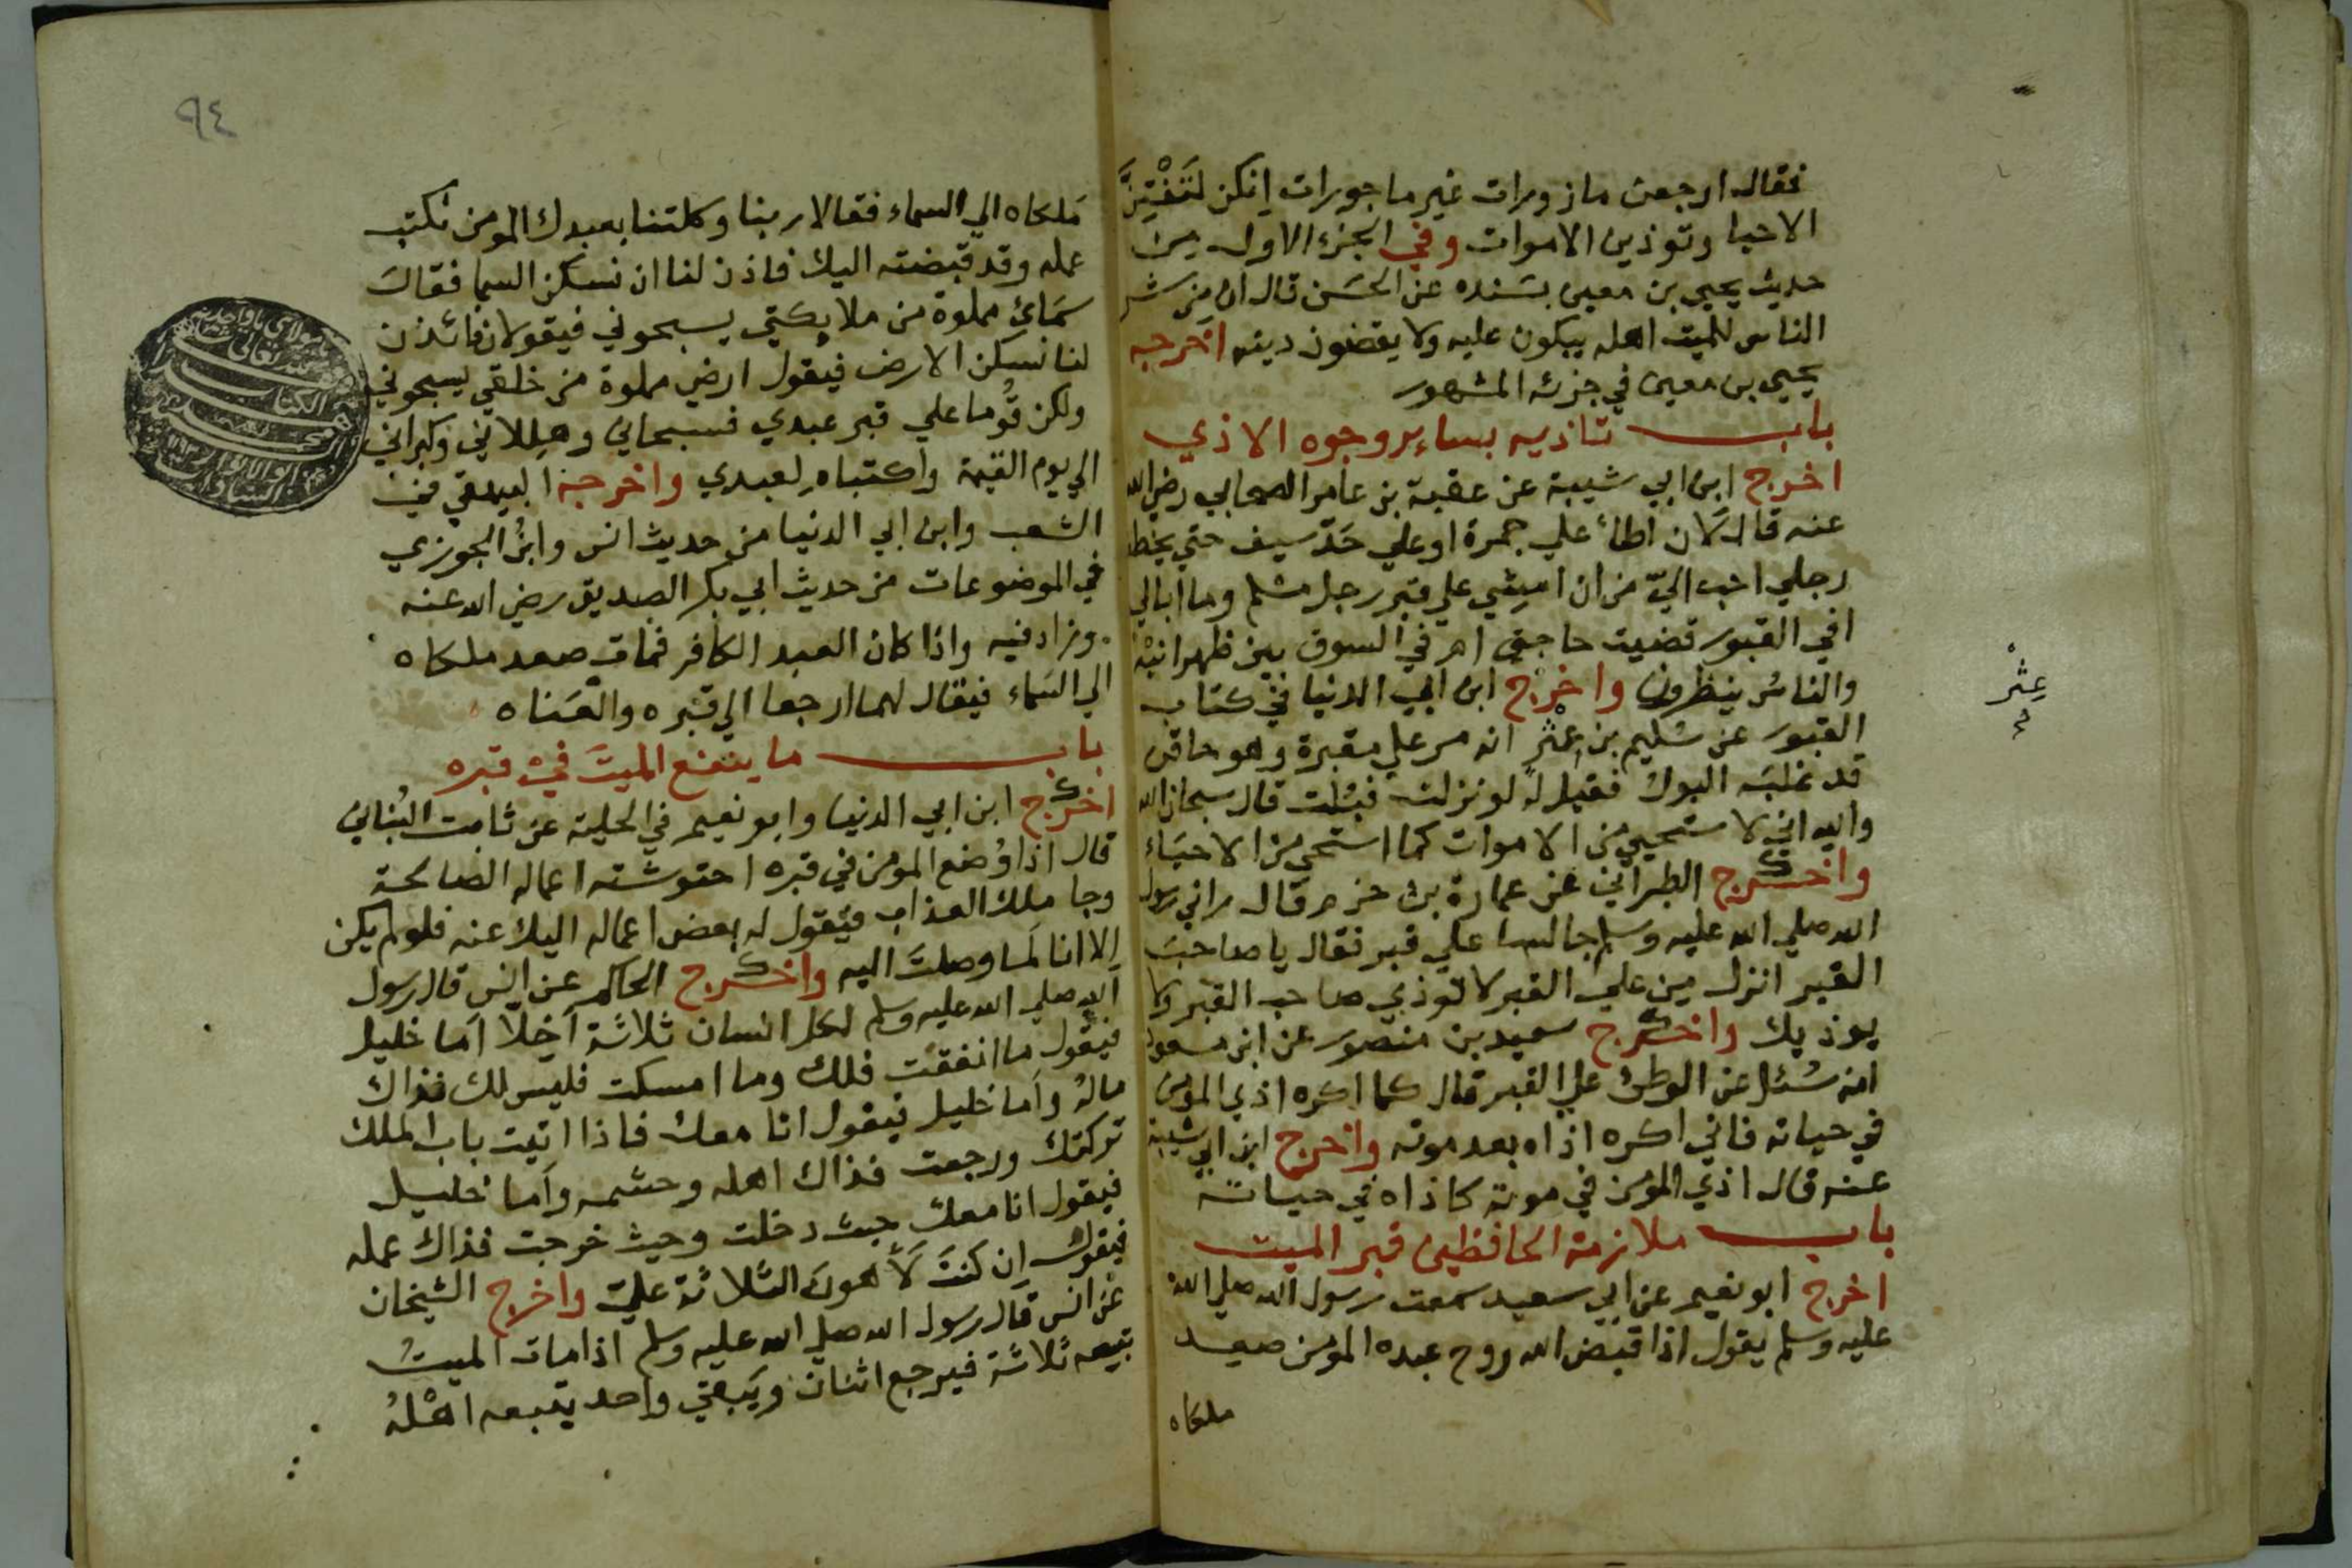 فقال ارجعن مازورات غير ماجورات انكن لَتَفْتِنَّ
الاحيا وتوذين الاموات وفي الجزء الاول من
حديث يحيي بن معين بسَنده عن الحسَن قال ان من شر
الناس للميت اهله يبكون عليه ولا يقضون دينه اخرجه
يحيي بن معين في جزئه المشهور
باب تاذيه بساير وجوه الاذي
اخرج ابن ابي شيبة عن عقبة بن عامر الصحابي رضي الله
عنه قال لان اطأ علي جمرة او علي حَدّ سيف حتي يخطف
رجلي احب اليّ من ان امشي علي قبر رجل مسلم وما ابالي
افي القبور قضيت حاجتي ام في السوق بين ظهرانيه
والناسُ ينظرون واخرج ابن ابي الدنيا في كتاب
القبور عن سُليم بن عِتْر انه مر علي مقبرة وهو حاقن
قد غلبَه البول فقيل له لو نزلت فبُلت قال سبحان الله
والله اني لاستحيي من الاموات كما استحي من الاحيَاء
واخرج الطبراني عن عمارة بن حزم قال راني رسول
الله صلي الله عليه وسلم جالسا علي قبر فقال يا صاحبَ
القبر انزل مِن علي القبر لا توذي صاحب القبر ولا
يوذيك واخرج سعيد بن منصور عن ابن مسعود
انه سُئل عن الوطئ علي القبر قال كما اكره اذي المومن
في حياته فاني اكره اذاه بعد موته واخرج ابن ابي شيبة
عنه قال اذي المومن في موته كاذاه في حياته
باب ملازمة الحافظين قبر الميت
اخرج ابو نعيم عن ابي سعيد سمعت رسول الله صلي الله
عليه وسلم يقول اذا قبض الله روح عبده المومن صعِد
ملكاه
عِتْر
٩٤
مَلكاه الي السماء فقالا ربنا وكلتنا بعبدك المومن نكتب
عمله وقد قبضته اليك فاذن لنا ان نسكن السما فقال
سَمائي مملوة من ملايكتي يسبحوني فيقولان فائذن
لنا نسكن الارض فيقول ارضي مملوة من خلقي يسبحوني
ولكن قُوما علي قبر عبدي فسبحاني وهللاني وكبراني
الي يوم القيمة واكتباه لعبدي واخرجه البيهقي في
الشعب وابن ابي الدنيا من حديث انس وابنُ الجوزي
في الموضوعات من حديث ابي بكر الصديق رضي الله عنه
وزاد فيه واذا كان العبد الكافر فمات صعد ملكاه
الي السَماء فيقال لهما ارجعا الي قبره والعَناه
باب ما ينفع الميتَ في قبره
اخرج ابن ابي الدنيا وابو نعيم في الحلية عن ثابت البُناني
قال اذا وُضع المومن في قبره احتوشته اعماله الصالحة
وجا ملك العذاب فيقول له بعض اعماله اليك عنه فلو لم يكن
الا انا لَما وصلتَ اليه واخرج الحاكم عن انس قال رسول
الله صلي الله عليه وسلم لكل انسان ثلاثة اَخِلّا اَما خليل
فيقول ما انفقت فلك وما امسكت فليس لك فذاك
مالهُ واَما خليل فيقول انا معك فاذا اتيت باب الملك
تركتك ورجعت فذاك اهله وحشمه واَما خليل
فيقول انا معك حيث دخلت وحيث خرجت فذاك عمله
فيقول اِن كنتَ لَاَهونَ الثلاثة عليّ واخرج الشيخان
عن انس قال رسول الله صلي الله عليه وسلم اذا مات الميتُ
تبعه ثلاثة فيرجع اثنان ويَبقي واحد يتبعه اهْلهُ